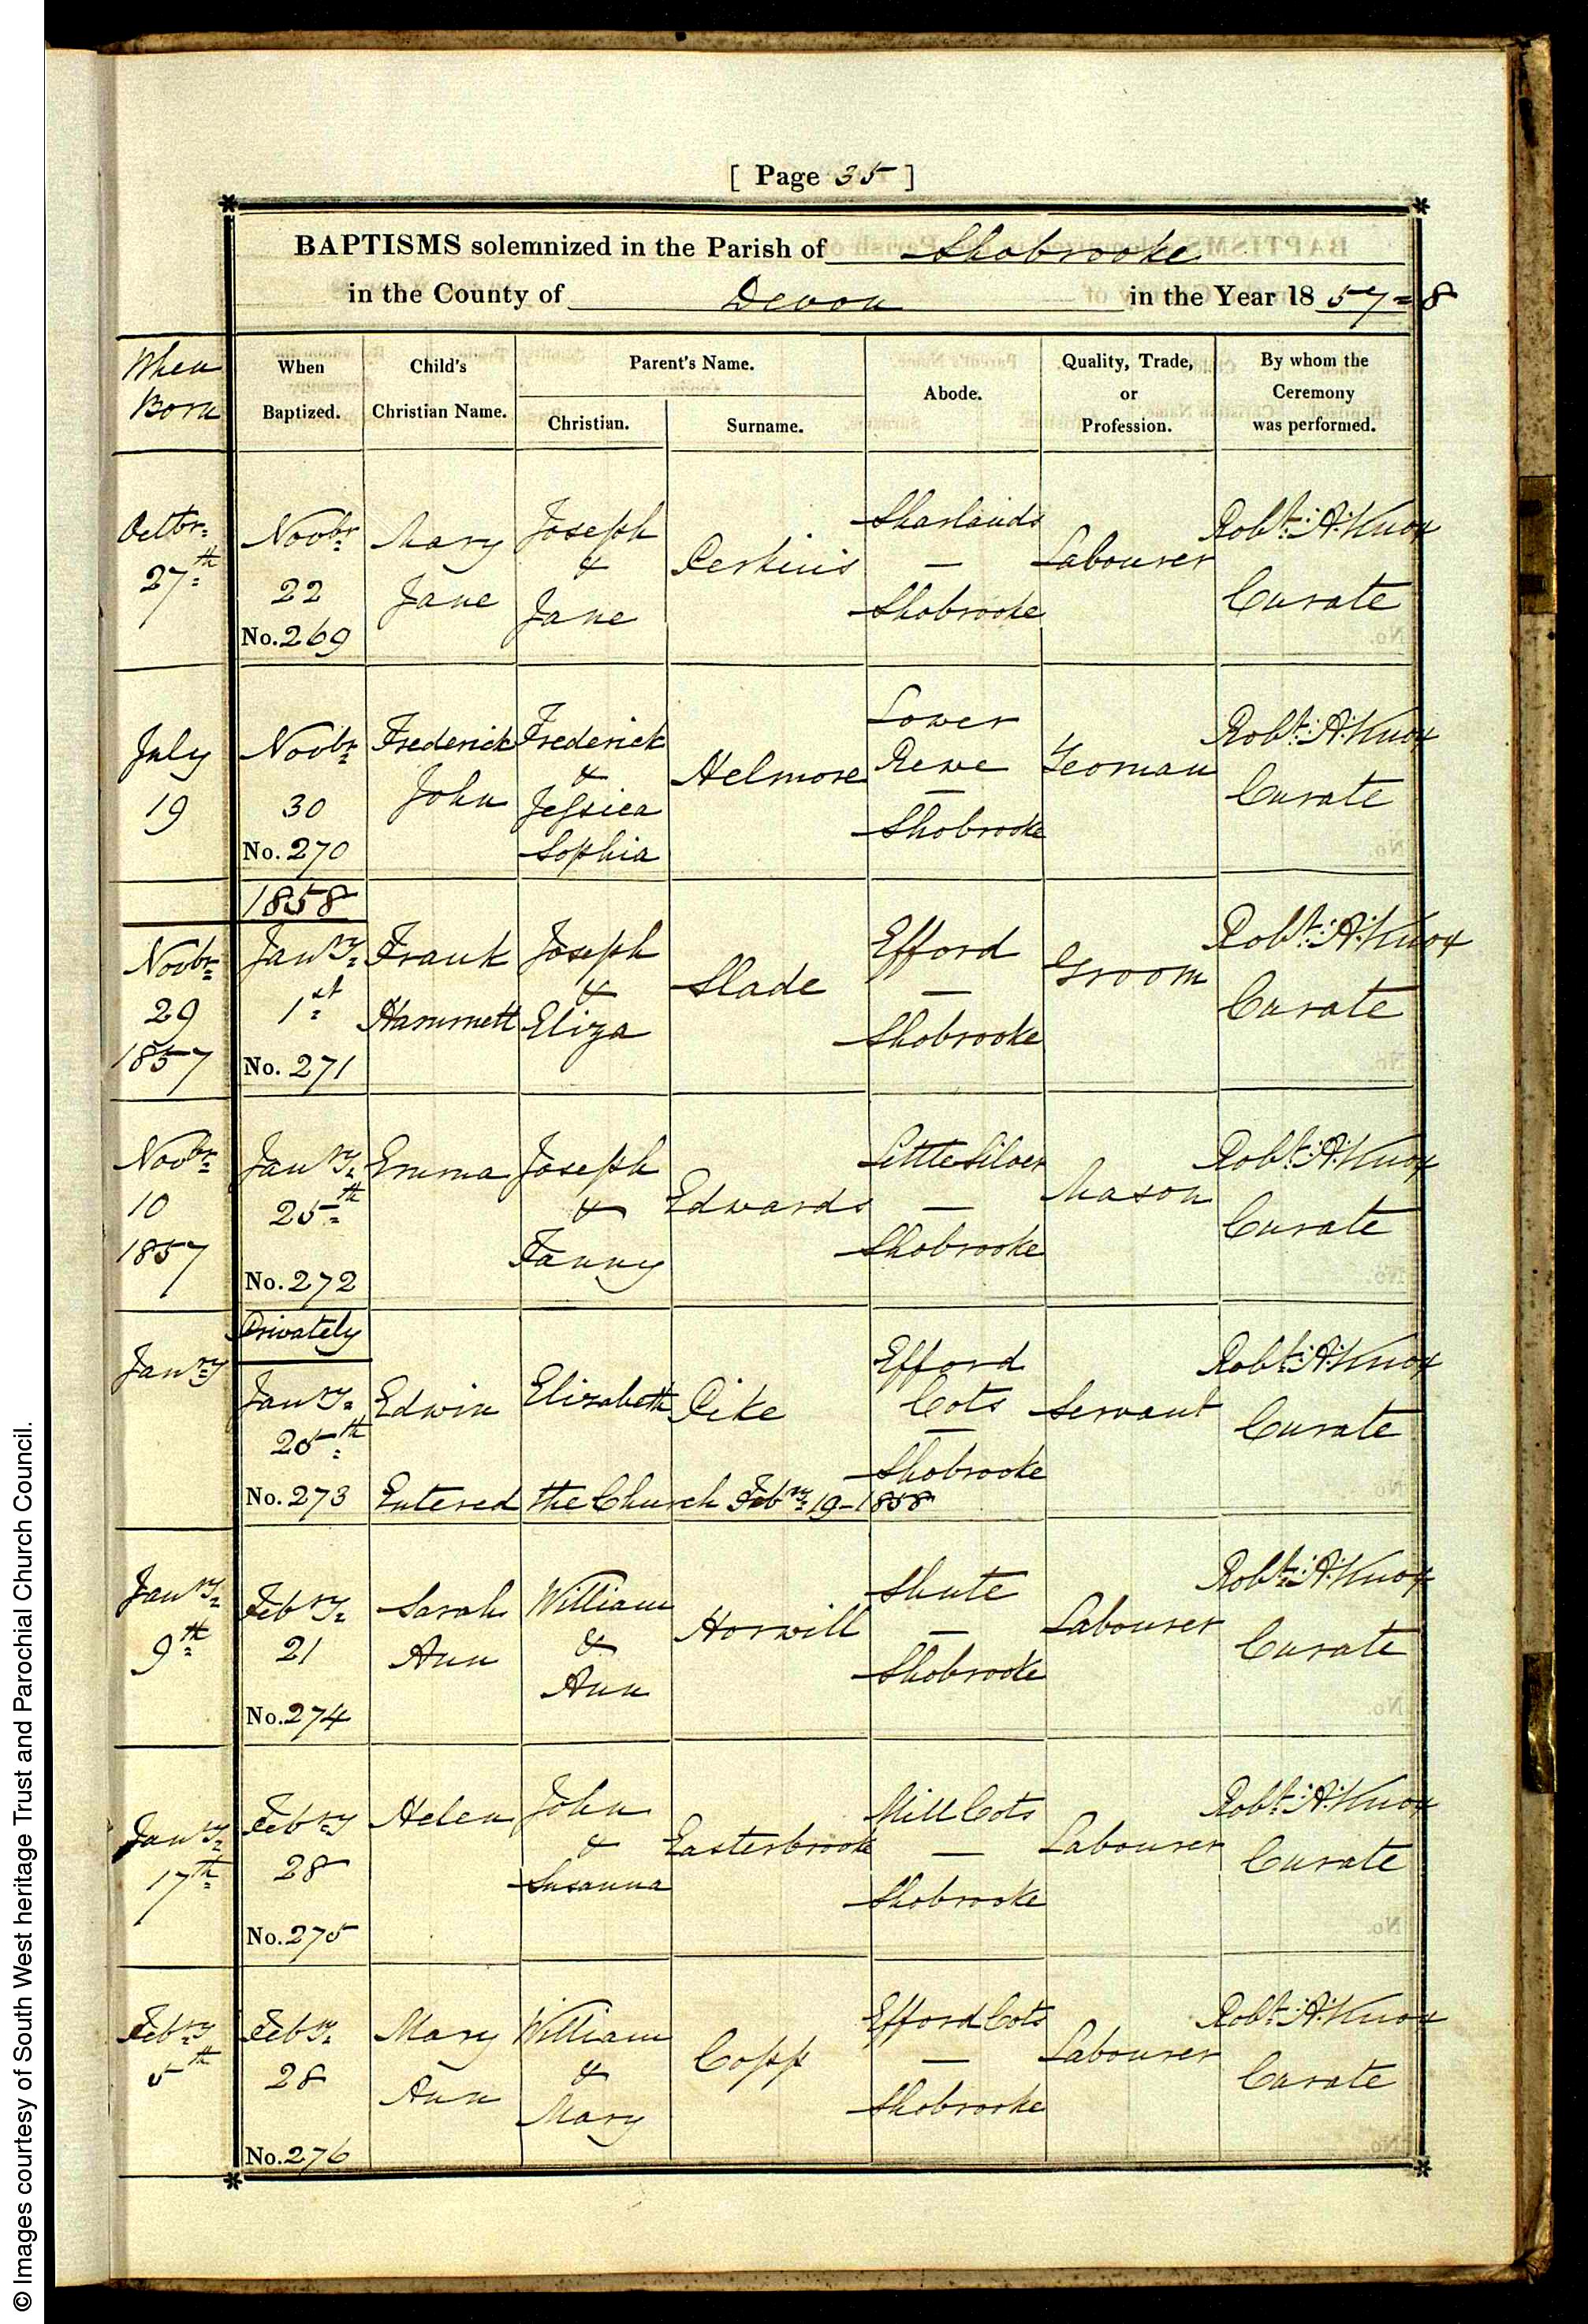 [ Page 35 ]
BAPTISMS solemnized in the Parish of Shobrooke
in the County of Devon in the Year 18 57=8
When Born
When Baptized.
Child's Christian Name.
Parent's Name.
Christian.
Surname.
Abode.
Quality, Trade, or Profession.
By whom the Ceremony was performed.
Octbr. 27th
Novbr 22
No. 269
Mary Jane
Joseph & Jane
Perkins
Sharlands — Shobrooke
Labourer
Robt. A. Knox Curate
July 19
Novbr 30
No. 270
Frederick John
Frederick & Jessica Sophia
Helmore
Lower Rewe — Shobrooke
Yeoman
Robt. A. Knox Curate
Novbr 29 1857
1858
Janry. 1st
No. 271
Frank Hammett
Joseph & Eliza
Slade
Efford — Shobrooke
Groom
Robt. A. Knox Curate
Novbr 10 1857
Janry. 25th
No. 272
Emma
Joseph & Fanny
Edwards
Little Silver — Shobrooke
Mason
Robt. A. Knox Curate
Janry
Privately
Janry. 25th
No. 273
Edwin
Elizabeth
Pike
Efford Cots — Shobrooke
Servant
Robt. A. Knox Curate
Entered the Church Febry. 19 - 1858
Janry. 9th
Febry. 21
No. 274
Sarah Ann
William & Ann
Horwill
Shute — Shobrooke
Labourer
Robt. A. Knox Curate
Janry. 17th
Febry 28
No. 275
Helen
John & Susanna
Easterbrook
Mill Cots — Shobrooke
Labourer
Robt. A. Knox Curate
Febry 5th
Feby. 28
No. 276
Mary Ann
William & Mary
Copp
Efford Cots — Shobrooke
Labourer
Robt. A. Knox Curate
© Images courtesy of South West heritage Trust and Parochial Church Council.